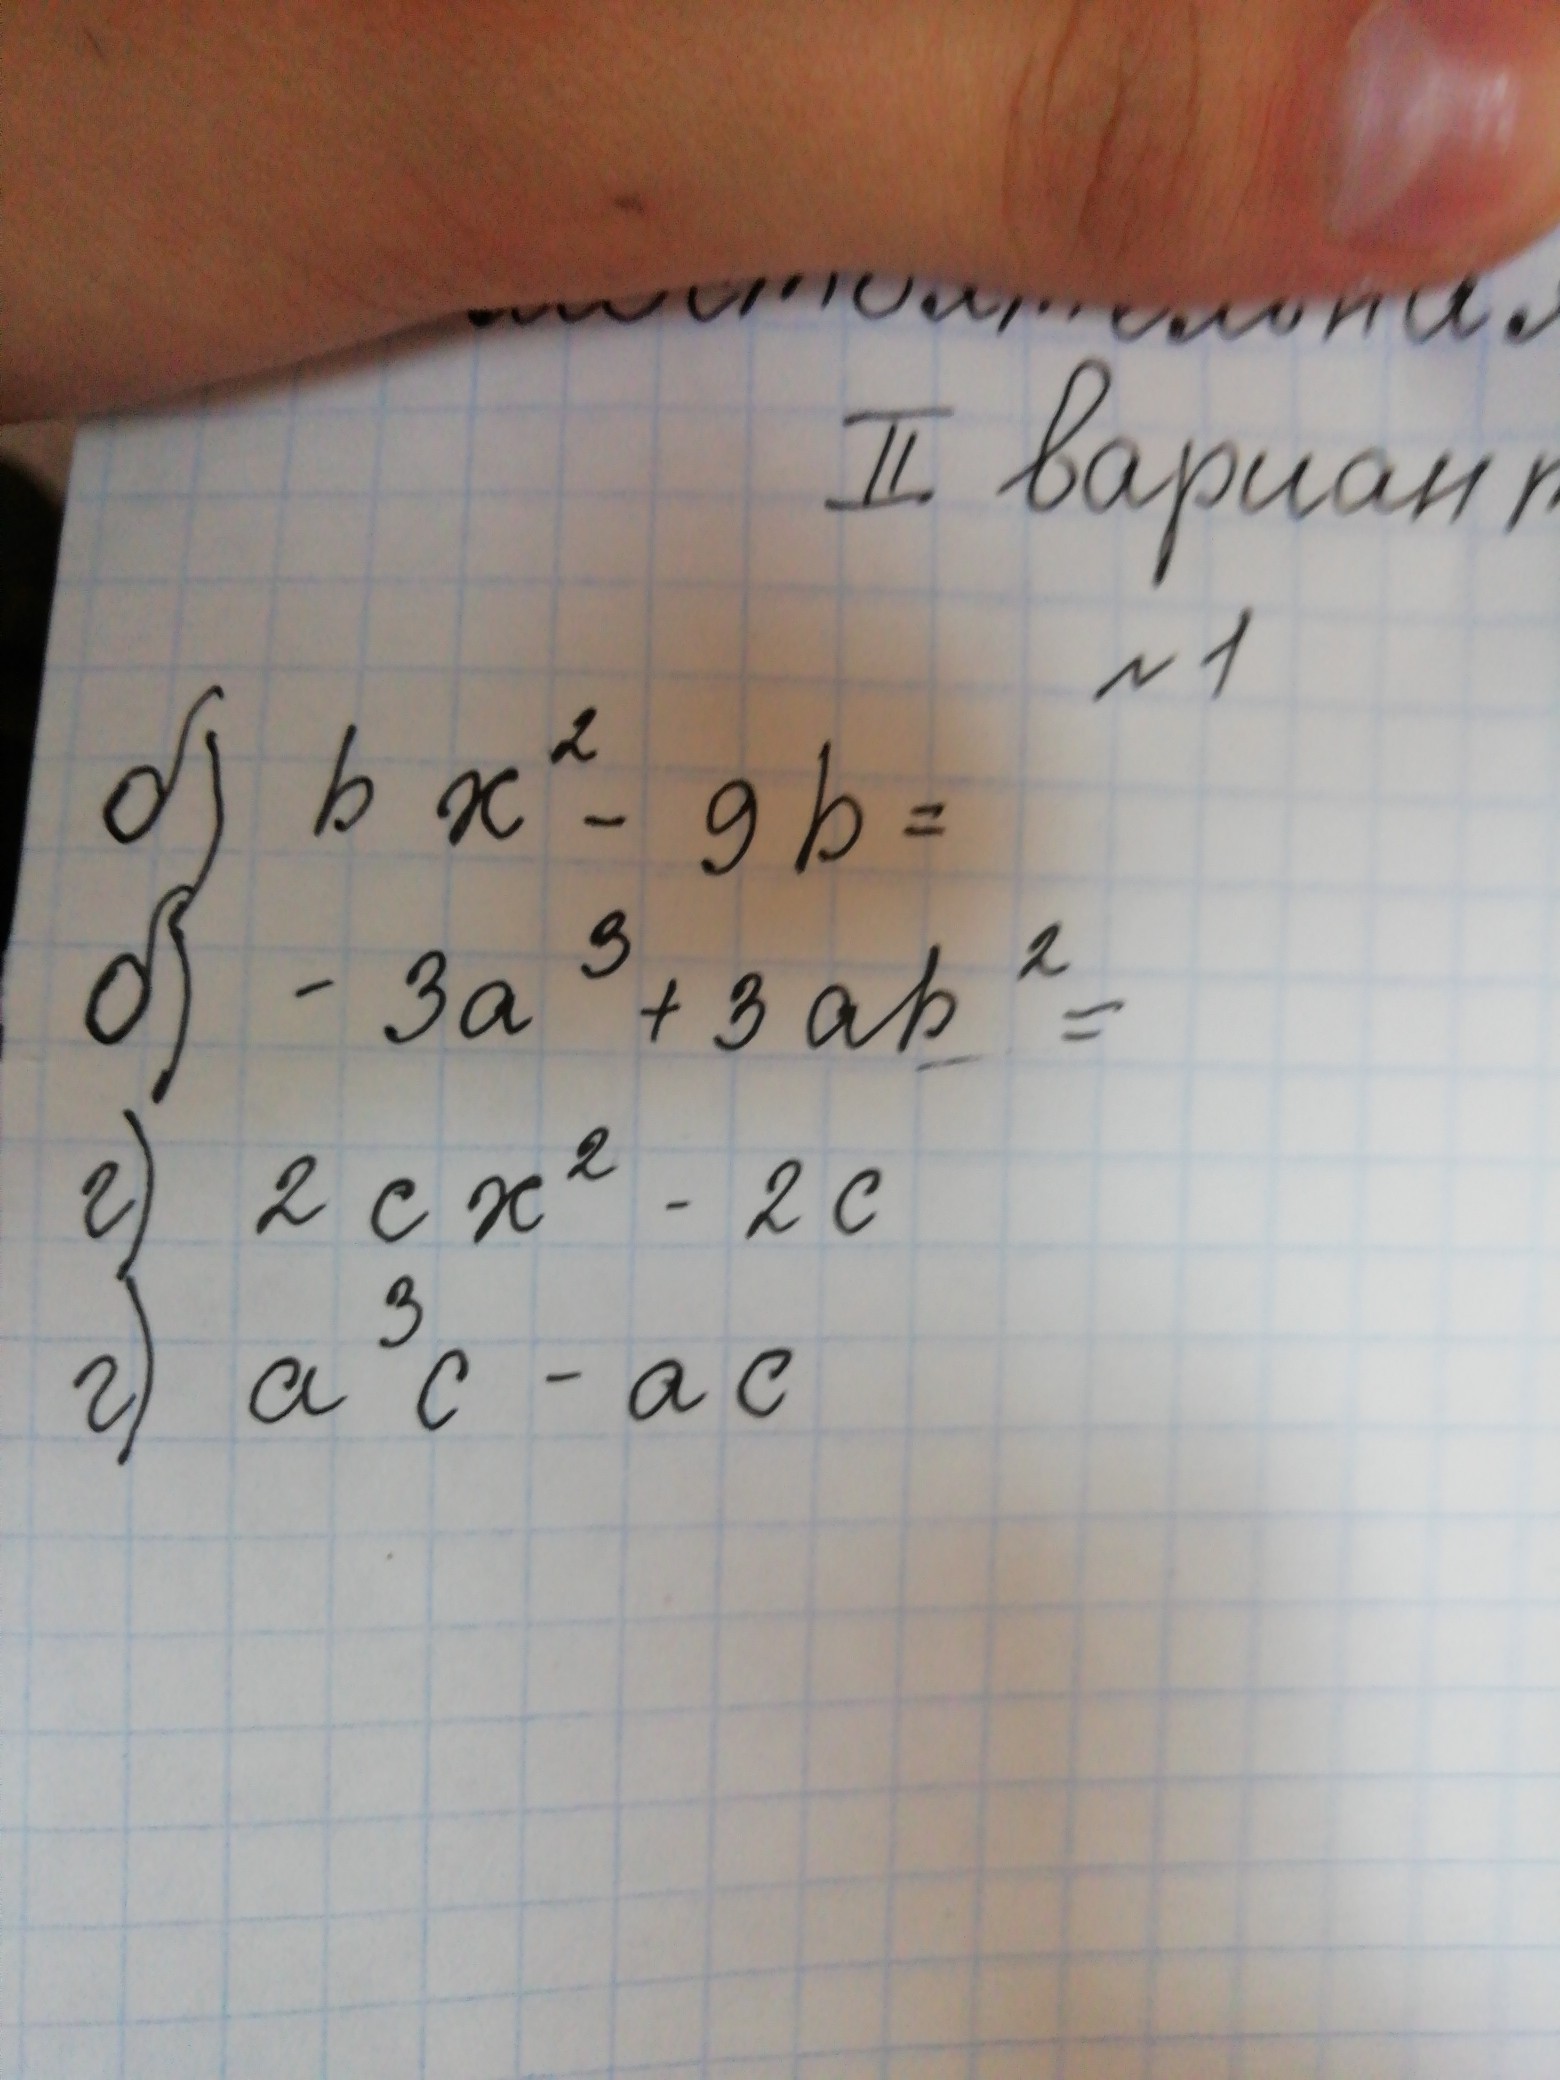 II вариант
№1
б) bx² - 9b =
б) - 3a³ + 3ab² =
г) 2cx² - 2c
г) a³c - ac